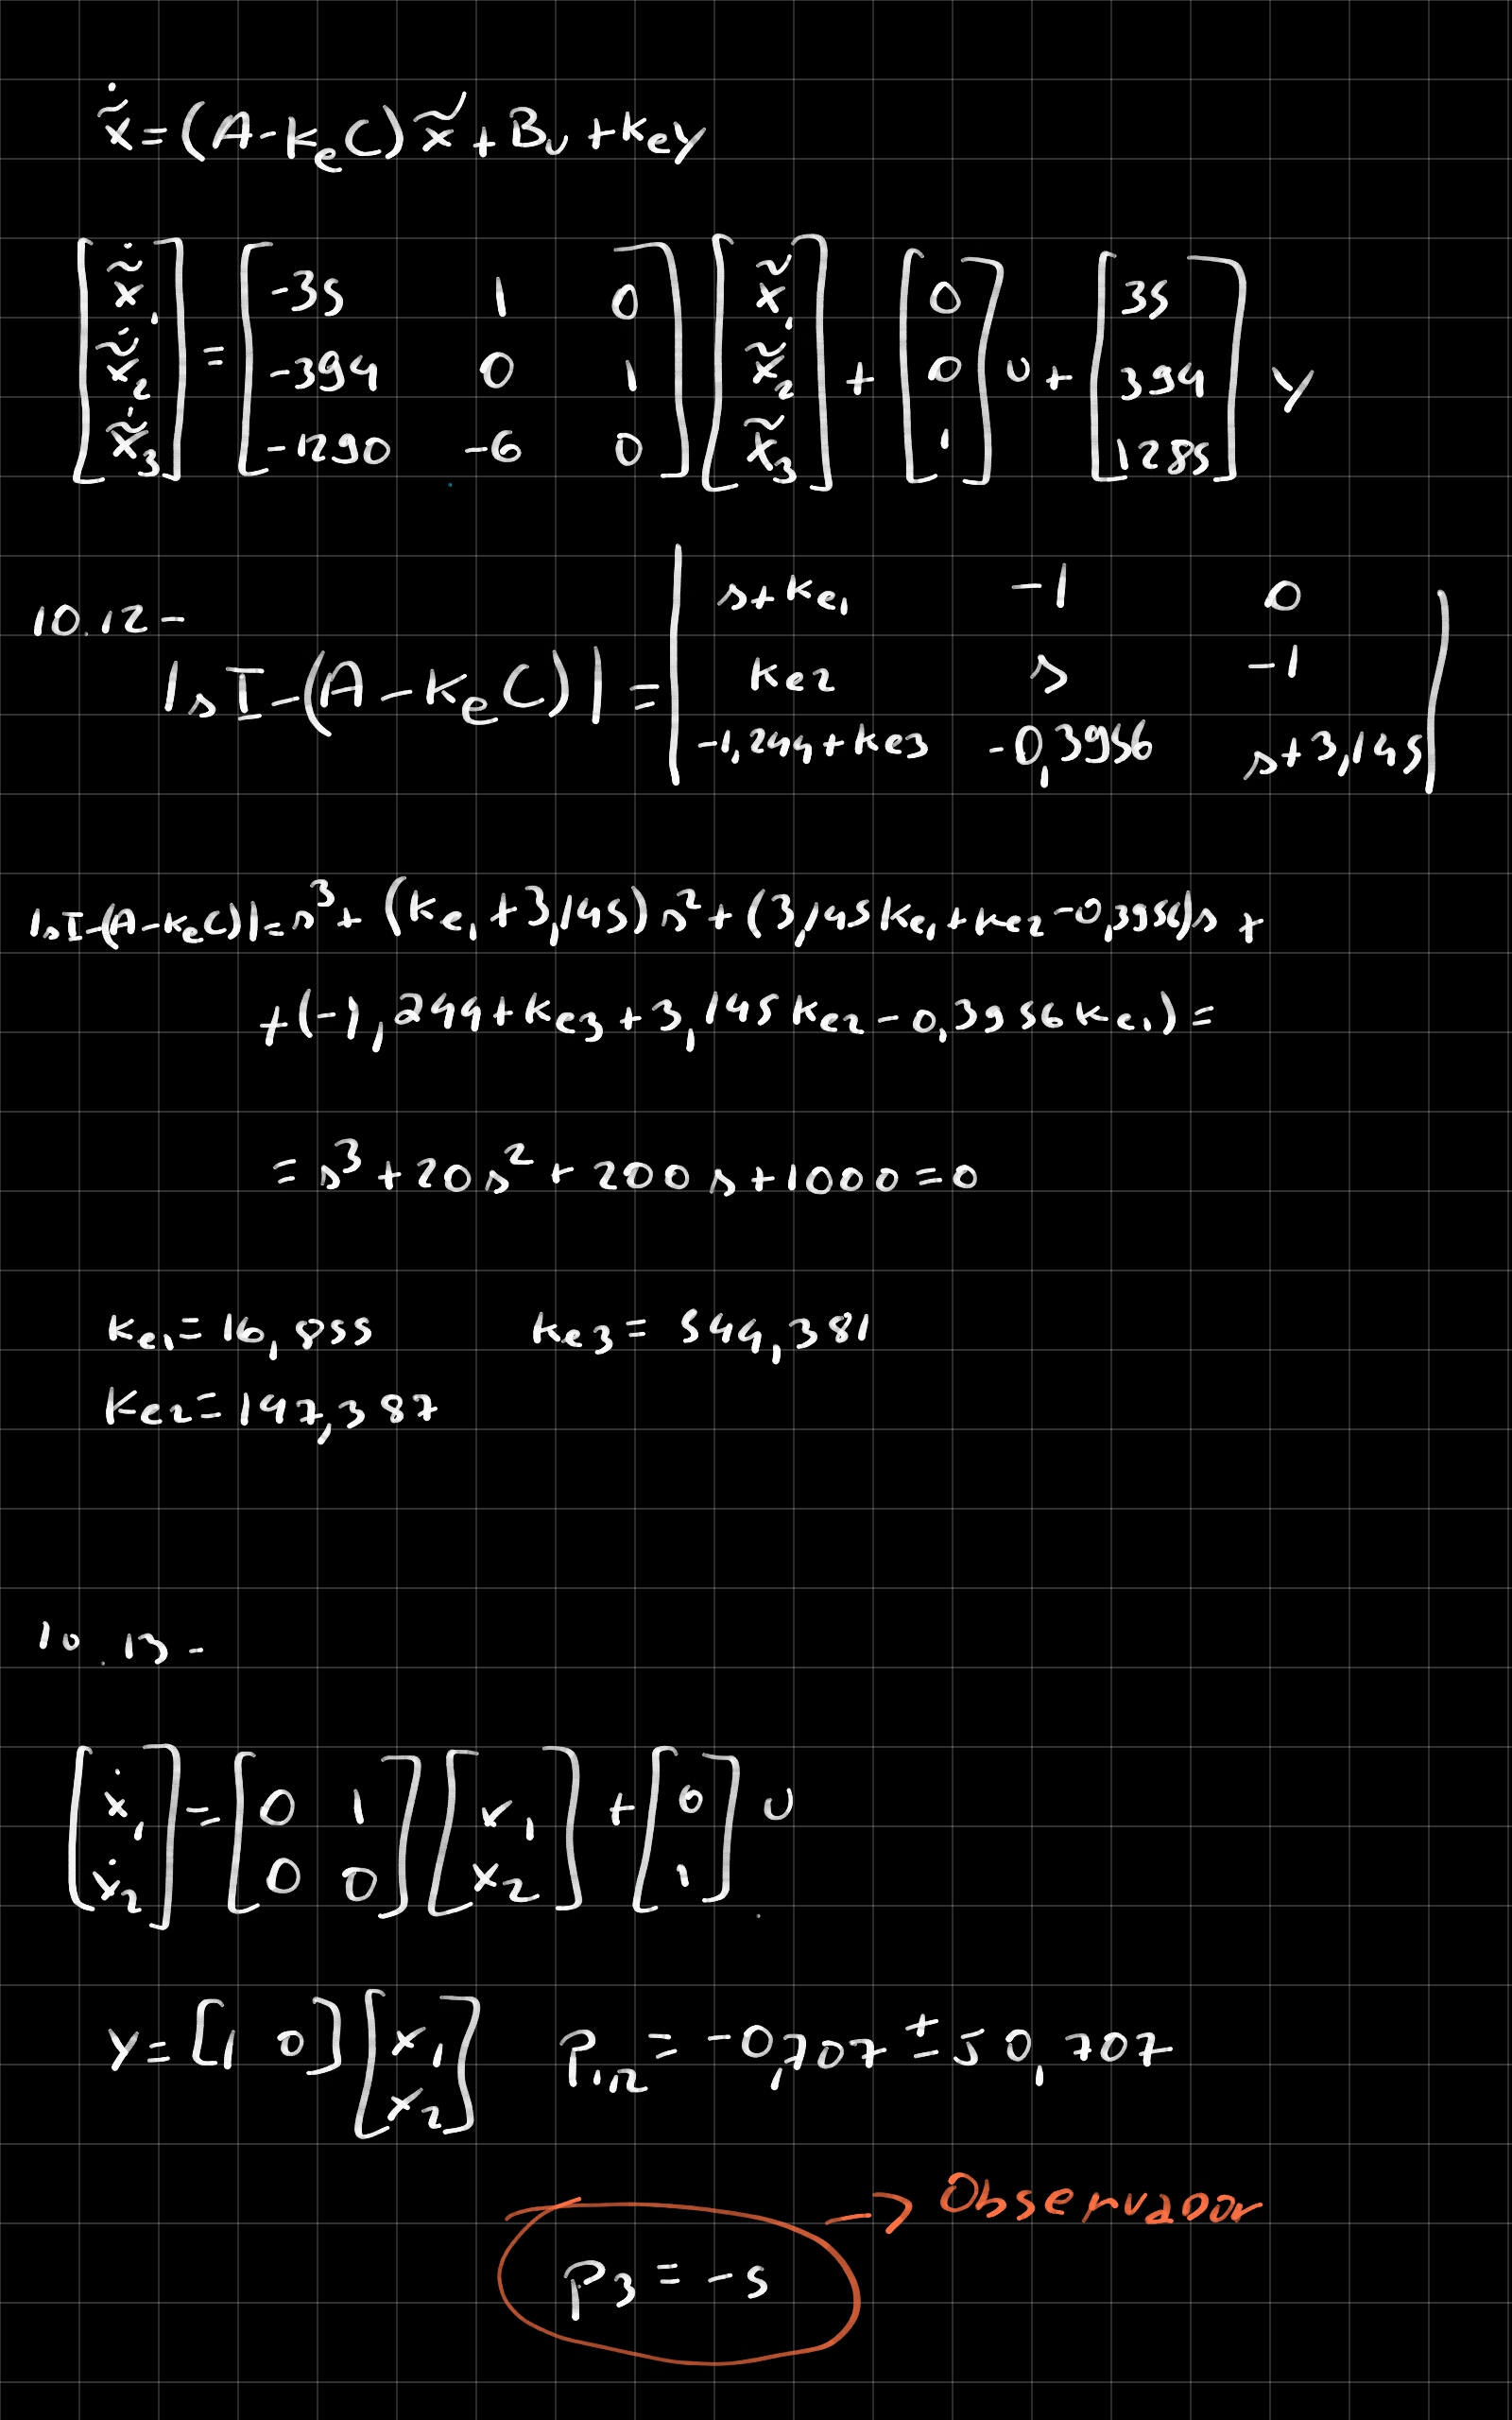 x̃̇ = (A - KeC) x̃ + Bu + Key
[x̃̇1; x̃̇2; x̃̇3] = [-35 1 0; -394 0 1; -1290 -6 0] [x̃1; x̃2; x̃3] + [0; 0; 1] u + [35; 394; 1285] y
10.12-
|sI - (A - KeC)| = |s+Ke1 -1 0; Ke2 s -1; -1,244+Ke3 -0,3956 s+3,145|
|sI-(A-KeC)| = s³ + (Ke1 + 3,145) s² + (3,145Ke1 + Ke2 - 0,3956)s +
+(-1,244 + Ke3 + 3,145 Ke2 - 0,3956 Ke1) =
= s³ + 20 s² + 200 s + 1000 = 0
Ke1 = 16,855 Ke3 = 544,381
Ke2 = 147,387
10.13-
[ẋ1; ẋ2] = [0 1; 0 0] [x1; x2] + [0; 1] u
y = [1 0] [x1; x2] P1,2 = -0,707 ± j0,707
→ Observador
P3 = -5